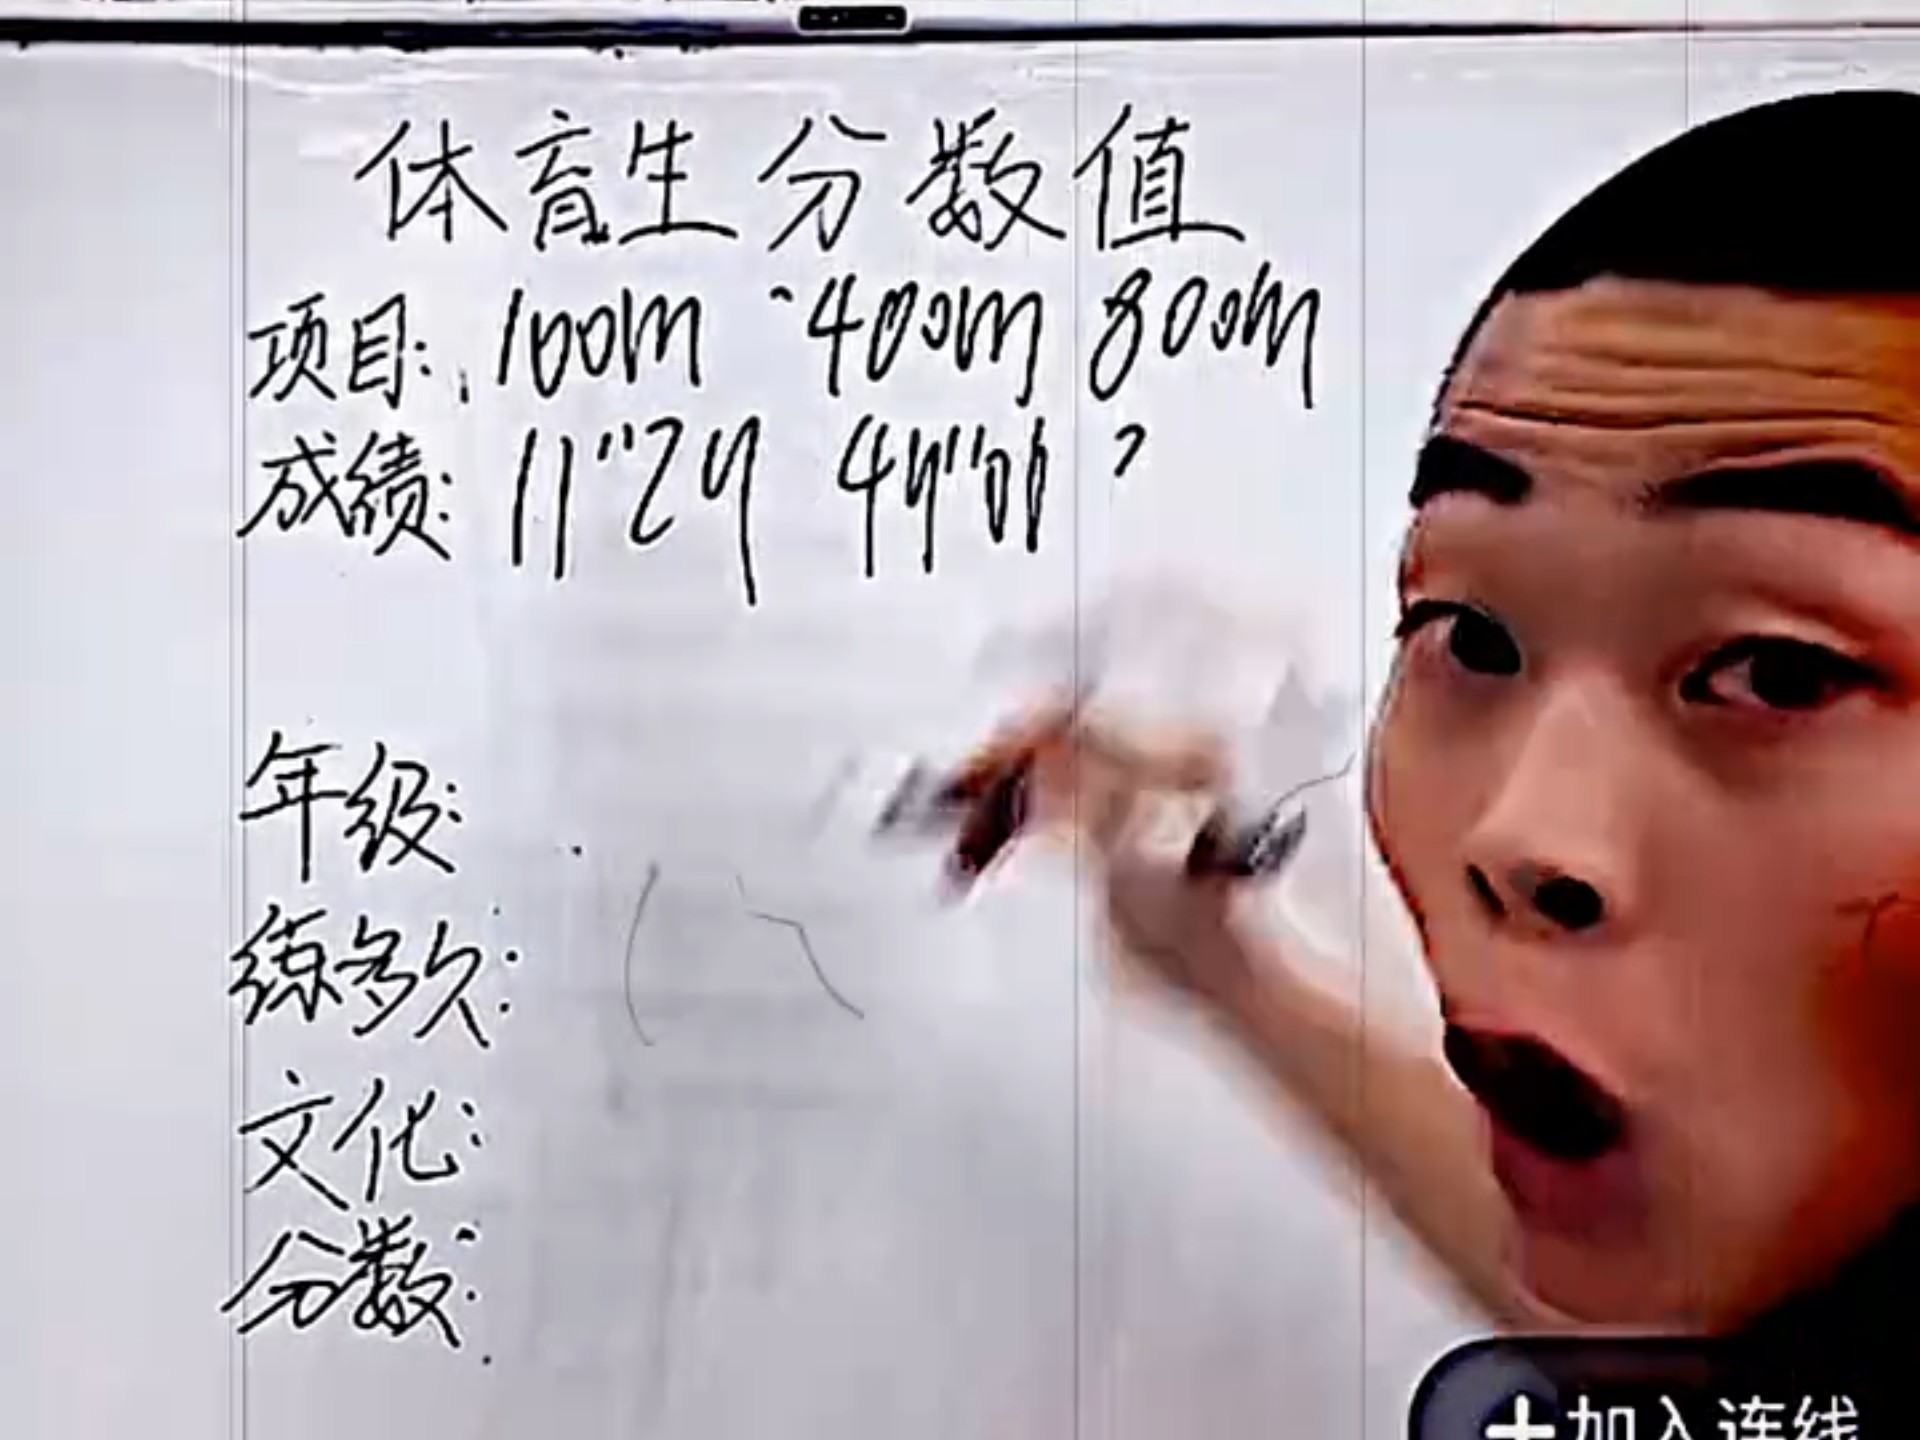 体育生分数值
项目: 100m 400m 800m
成绩: 11"24 49"01 ?
年级:
练多久:
文化:
分数:
+加入连线